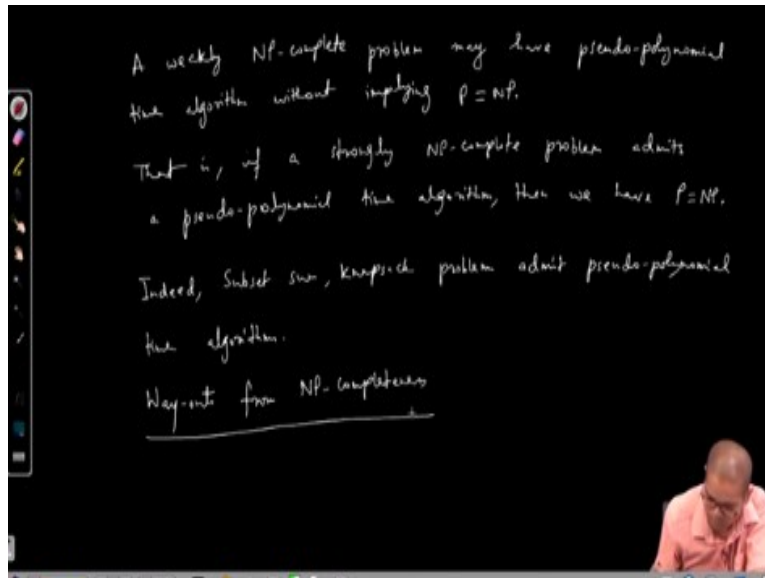 A weekly NP-complete problem may have pseudo-polynomial
time algorithm without implying P = NP.
That is, if a strongly NP-complete problem admits
a pseudo-polynomial time algorithm, then we have P = NP.
Indeed, Subset sum, knapsack problem admit pseudo-polynomial
time algorithm.
Way-outs from NP-completeness